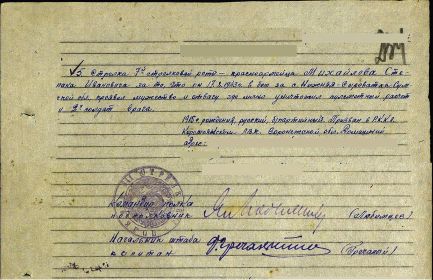 5. Стрелка 7й стрелковой роты – красноармейца Михайлова Сте-
пана Ивановича за то, что он 17.8.1943г. в бою за с. Нижняя-Сыроватка-Сум-
ской обл. проявил мужество и отвагу где лично уничтожил пулеметный расчет
и 2х солдат врага.
1915 г. рождения, русский, беспартийный. Призван в Р.К.К.А.
Коротоякским РВК. Воронежской обл. Домашний
адрес:
Командир полка
подполковник (Любимцев)
Начальник штаба
капитан